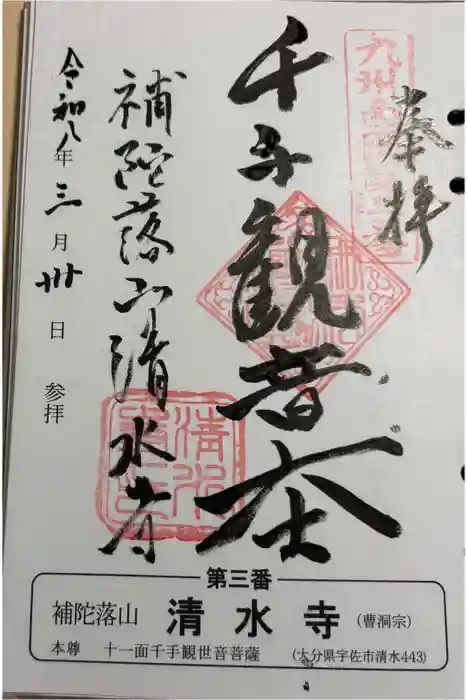 奉拝
九州西国第三番
千手観音大士
補陀落山清水寺
令和八年三月卅日 参拝
第三番
補陀落山 清水寺 (曹洞宗)
本尊 十一面千手観世音菩薩 (大分県宇佐市清水443)